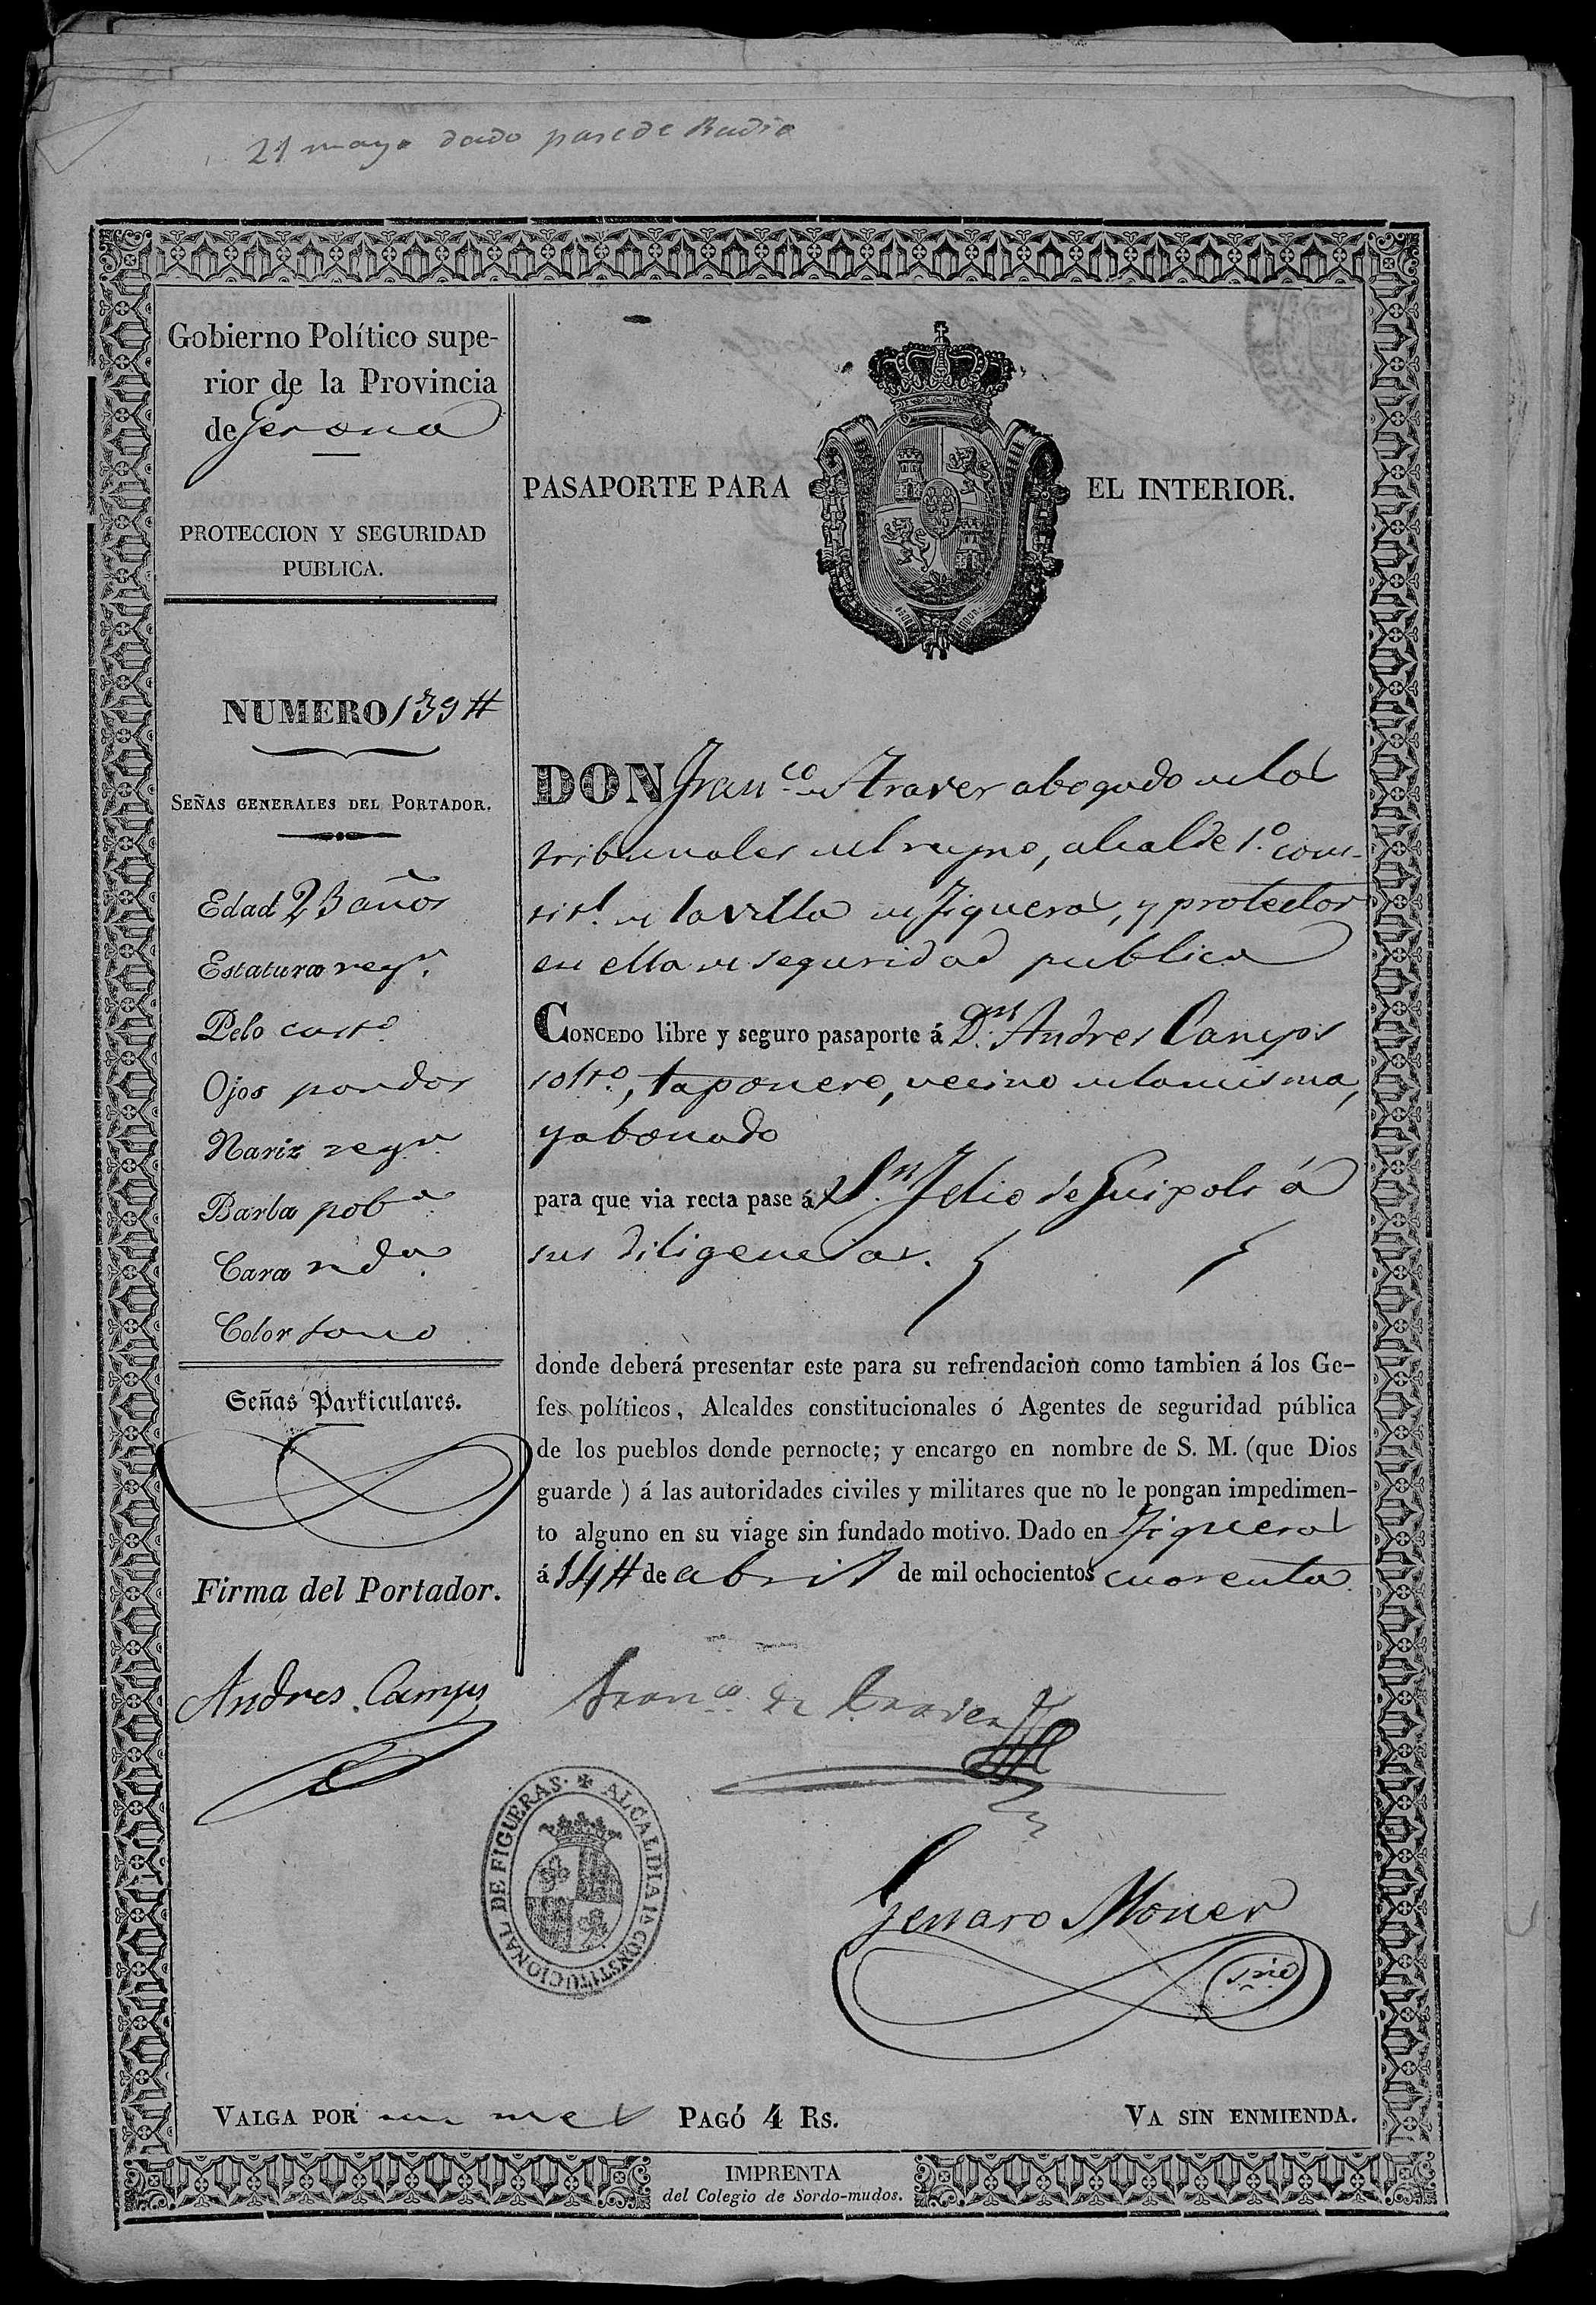 21 mayo dado pase de Radio
Gobierno Político supe-
rior de la Provincia
de Gerona
PROTECCION Y SEGURIDAD
PUBLICA.
NUMERO 139#
SEÑAS GENERALES DEL PORTADOR.
Edad 23 años
Estatura regr.
Pelo casto.
Ojos pardos
Nariz regr.
Barba poba.
Cara rda.
Color sano
Señas Particulares.
Firma del Portador.
Andres Camps
PASAPORTE PARA EL INTERIOR.
DON Franco. de Traver abogado de los
tribunales del reyno, alcalde 1º. cons-
titl. de la villa de Figueras, y protector
en ella de seguridad publica
CONCEDO libre y seguro pasaporte á Dn. Andres Camps
solto., taponero, vecino de la misma,
y abonado
para que via recta pase á Sn. Feliu de Guixols á
sus diligencias.
donde deberá presentar este para su refrendacion como tambien á los Ge-
fes políticos, Alcaldes constitucionales ó Agentes de seguridad pública
de los pueblos donde pernocte; y encargo en nombre de S. M. (que Dios
guarde ) á las autoridades civiles y militares que no le pongan impedimen-
to alguno en su viage sin fundado motivo. Dado en Figueras
á 14# de abril de mil ochocientos cuarenta.
Franco. de Traver
ALCALDIA 1ª CONSTITUCIONAL DE FIGUERAS.
Genaro Moner
srio
VALGA POR un mes PAGÓ 4 Rs. VA SIN ENMIENDA.
IMPRENTA
del Colegio de Sordo-mudos.